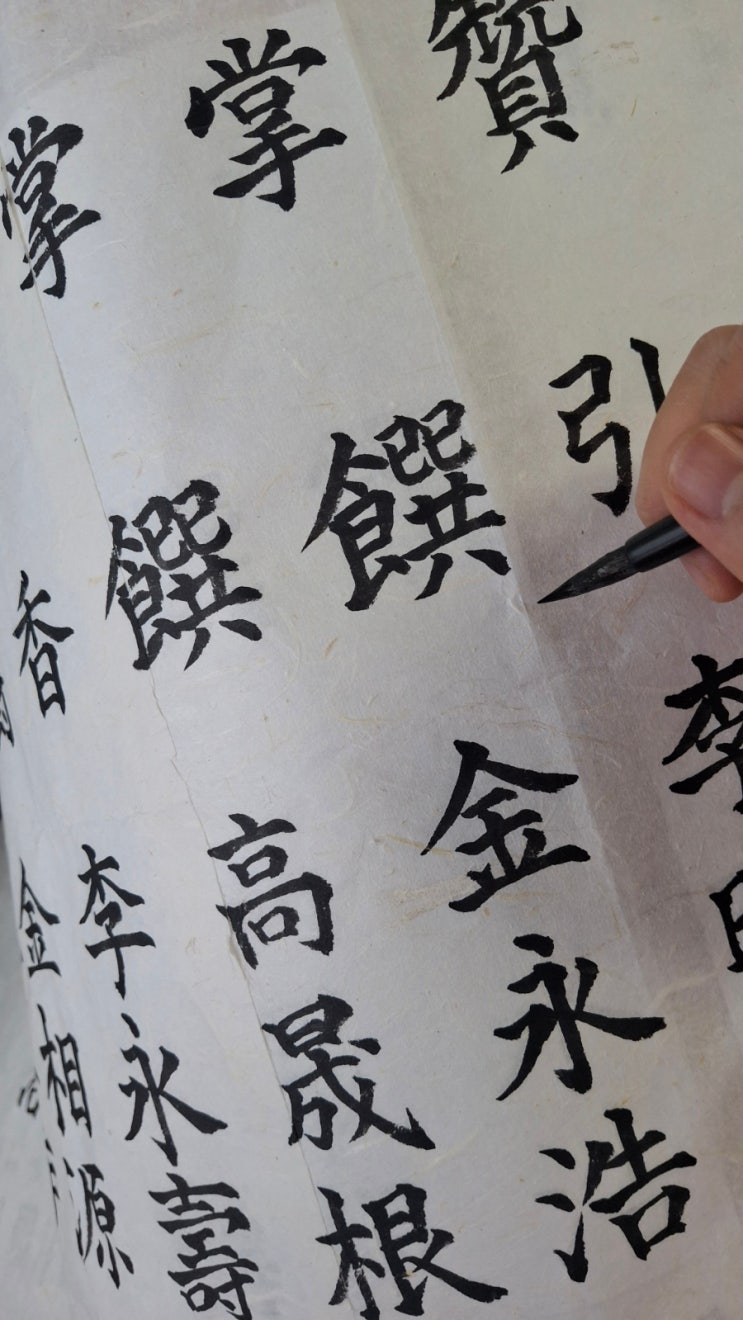 贊引李
掌饌金永浩
掌饌高晟根
香李永壽
金相源